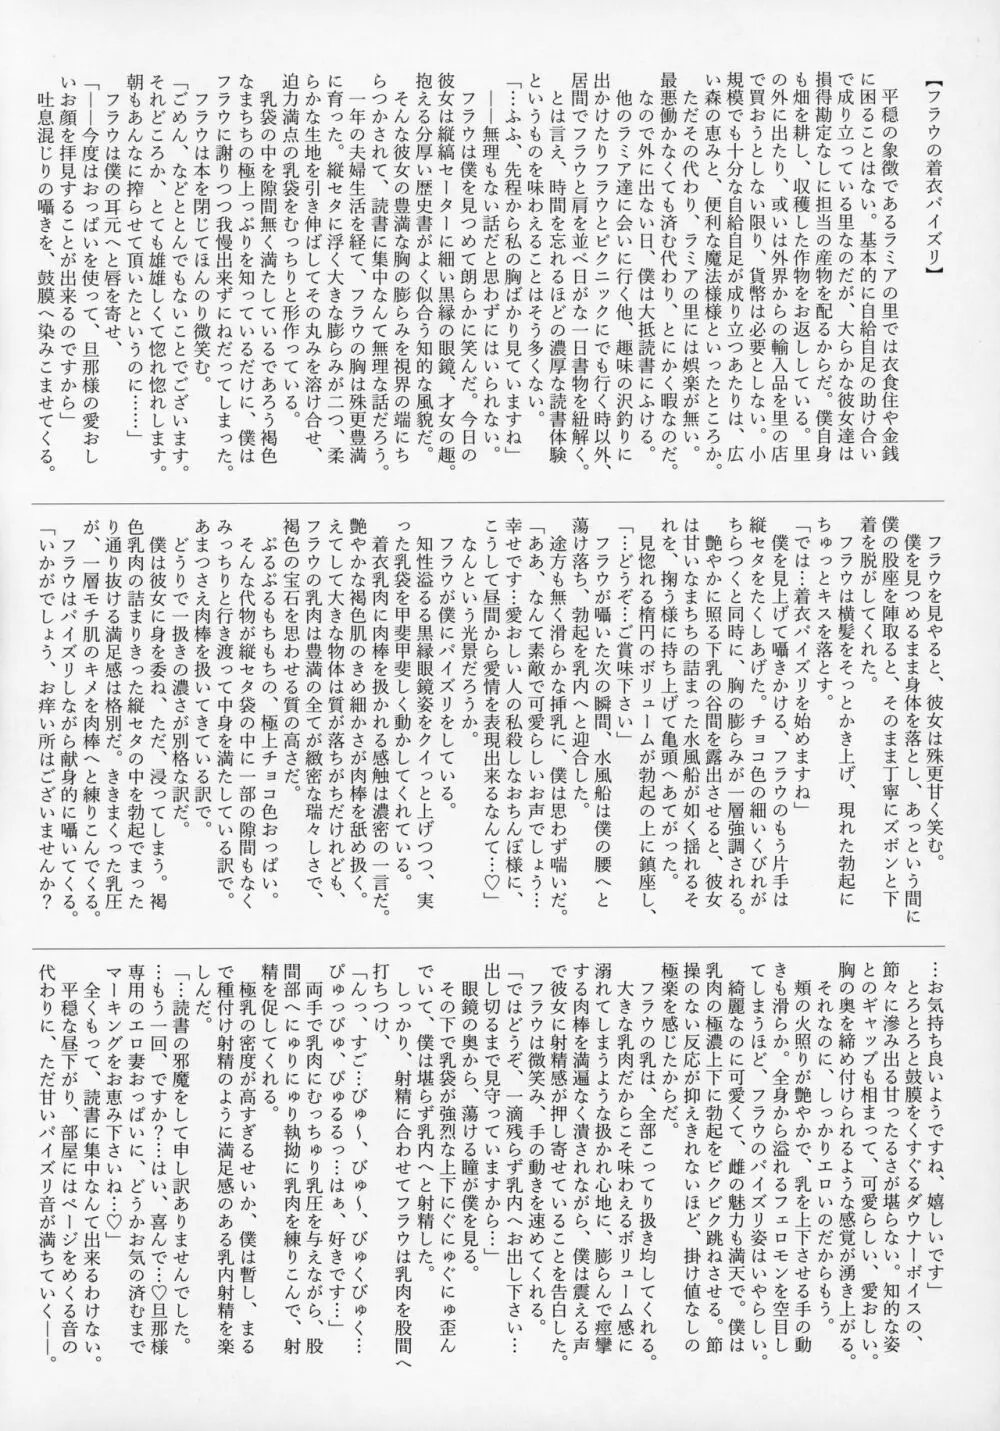 【フラウの着衣パイズリ】
平穏の象徴であるラミアの里では衣食住や金銭
に困ることはない。基本的に自給自足の助け合い
で成り立っている里なのだが、大らかな彼女達は
損得勘定なしに担当の産物を配るからだ。僕自身
も畑を耕し、収穫した作物をお返ししている。里
の外に出たり、或いは外界からの輸入品を里の店
で買おうとしない限り、貨幣は必要としない。小
規模でも十分な自給自足が成り立つあたりは、広
い森の恵みと、便利な魔法様様といったところか。
ただその代わり、ラミアの里には娯楽が無い。
最悪働かなくても済む代わり、とにかく暇なのだ。
なので外に出ない日、僕は大抵読書にふける。
他のラミア達に会いに行く他、趣味の沢釣りに
出かけたりフラウとピクニックにでも行く時以外、
居間でフラウと肩を並べ日がな一日書物を紐解く。
とは言え、時間を忘れるほどの濃厚な読書体験
というものを味わえることはそう多くない。
「…ふふ、先程から私の胸ばかり見ていますね」
――無理もない話だと思わずにはいられない。
フラウは僕を見つめて朗らかに笑んだ。今日の
彼女は縦縞セーターに細い黒縁の眼鏡、才女の趣。
抱える分厚い歴史書がよく似合う知的な風貌だ。
そんな彼女の豊満な胸の膨らみを視界の端にち
らつかされて、読書に集中なんて無理な話だろう。
一年の夫婦生活を経て、フラウの胸は殊更豊満
に育った。縦セタに浮く大きな膨らみが二つ、柔
らかな生地を引き伸ばしてその丸みを溶け合せ、
迫力満点の乳袋をむっちりと形作っている。
乳袋の中を隙間無く満たしているであろう褐色
なまちちの極上っぷりを知っているだけに、僕は
フラウに謝りつつ我慢出来ずにねだってしまった。
フラウは本を閉じてほんのり微笑む。
「ごめん、などととんでもないことでございます。
それどころか、とても雄雄しくて惚れ惚れします。
朝もあんなに搾らせて頂いたというのに……」
フラウは僕の耳元へと唇を寄せ、
「――今度はおっぱいを使って、旦那様の愛おし
いお顔を拝見することが出来るのですから」
吐息混じりの囁きを、鼓膜へ染みこませてくる。
フラウを見やると、彼女は殊更甘く笑む。
僕を見つめるまま身体を落とし、あっという間に
僕の股座を陣取ると、そのまま丁寧にズボンと下
着を脱がしてくれた。
フラウは横髪をそっとかき上げ、現れた勃起に
ちゅっとキスを落とす。
「では…着衣パイズリを始めますね」
僕を見上げて囁きかける、フラウのもう片手は
縦セタをたくしあげた。チョコ色の細いくびれが
ちらつくと同時に、胸の膨らみが一層強調される。
艶やかに照る下乳の谷間を露出させると、彼女
は甘いなまちちの詰まった水風船が如く揺れるそ
れを、掬う様に持ち上げて亀頭へあてがった。
見惚れる楕円のボリュームが勃起の上に鎮座し、
「…どうぞ…ご賞味下さい」
フラウが囁いた次の瞬間、水風船は僕の腰へと
蕩け落ち、勃起を乳内へと迎合した。
途方も無く滑らかな挿乳に、僕は思わず喘いだ。
「ああ、なんて素敵で可愛らしいお声でしょう…
幸せです…愛おしい人の私殺しなおちんぽ様に、
こうして昼間から愛情を表現出来るなんて…♡」
なんという光景だろうか。
フラウが僕にパイズリをしている。
知性溢るる黒縁眼鏡姿をクイっと上げつつ、実
った乳袋を甲斐甲斐しく動かしてくれている。
着衣乳肉に肉棒を扱かれる感触は濃密の一言だ。
艶やかな褐色肌のきめ細かさが肉棒を舐め扱く。
えてして大きな物体は質が落ちがちだけれども、
フラウの乳肉は豊満の全てが緻密な瑞々しさで、
褐色の宝石を思わせる質の高さだ。
ぷるぷるもちもちの、極上チョコ色おっぱい。
そんな代物が縦セタ袋の中に一部の隙間もなく
みっちりと行き渡って中身を満たしている訳で。
あまつさえ肉棒を扱いてきている訳で。
どうりで一扱きの濃さが別格な訳だ。
僕は彼女に身を委ね、ただ、浸ってしまう。褐
色乳肉の詰まりきった縦セタの中を勃起でまった
り通り抜ける満足感は格別だ。ききまくった乳圧
が、一層モチ肌のキメを肉棒へと練りこんでくる。
フラウはパイズリしながら献身的に囁いてくる。
「いかがでしょう、お痒い所はございませんか？
…お気持ち良いようですね、嬉しいです」
とろとろと鼓膜をくすぐるダウナーボイスの、
節々に滲み出る甘ったるさが堪らない。知的な姿
とのギャップも相まって、可愛らしい、愛おしい。
胸の奥を締め付けられるような感覚が湧き上がる。
それなのに、しっかりエロいのだからもう。
頬の火照りが艶やかで、乳を上下させる手の動
きも滑らか。全身から溢れるフェロモンを空目し
てしまうほど、フラウのパイズリ姿はいやらしい。
綺麗なのに可愛くて、雌の魅力も満天で。僕は
乳肉の極濃上下に勃起をビクビク跳ねさせる。節
操のない反応が抑えきれないほど、掛け値なしの
極楽を感じたからだ。
フラウの乳は、全部こってり扱き均してくれる。
大きな乳肉だからこそ味わえるボリューム感に
溺れてしまうような扱かれ心地に、膨らんで痙攣
する肉棒を満遍なく潰されながら、僕は震える声
で彼女に射精感が押し寄せていることを告白した。
フラウは微笑み、手の動きを速めてくれる。
「ではどうぞ、一滴残らず乳内へお出し下さい…
出し切るまで見守っていますから…」
眼鏡の奥から、蕩ける瞳が僕を見る。
その下で乳袋が強烈な上下にぐにゅぐにゅ歪ん
でいて、僕は堪らず乳内へと射精した。
しっかり、射精に合わせてフラウは乳肉を股間へ
打ちつけ、
「んっ、すご…びゅ～、びゅ～、びゅくびゅく…
ぴゅっぴゅ、ぴゅるるっ…はぁ、好きです…」
両手で乳肉にむっちゅり乳圧を与えながら、股
間部へにゅりにゅり執拗に乳肉を練りこんで、射
精を促してくれる。
極乳の密度が高すぎるせいか、僕は暫し、まる
で種付け射精のように満足感のある乳内射精を楽
しんだ。
「…読書の邪魔をして申し訳ありませんでした。
…もう一回、ですか？…はい、喜んで…♡旦那様
専用のエロ妻おっぱいに、どうかお気の済むまで
マーキングをお恵み下さいね…♡」
全くもって、読書に集中なんて出来るわけない。
平穏な昼下がり、部屋にはページをめくる音の
代わりに、ただ甘いパイズリ音が満ちていく――。